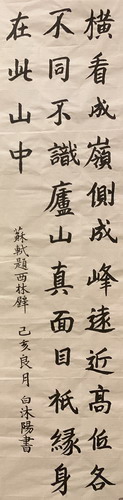 橫看成嶺側成峰遠近高低各
不同不識廬山真面目衹緣身
在此山中
蘇軾題西林壁 己亥良月 白沐陽書